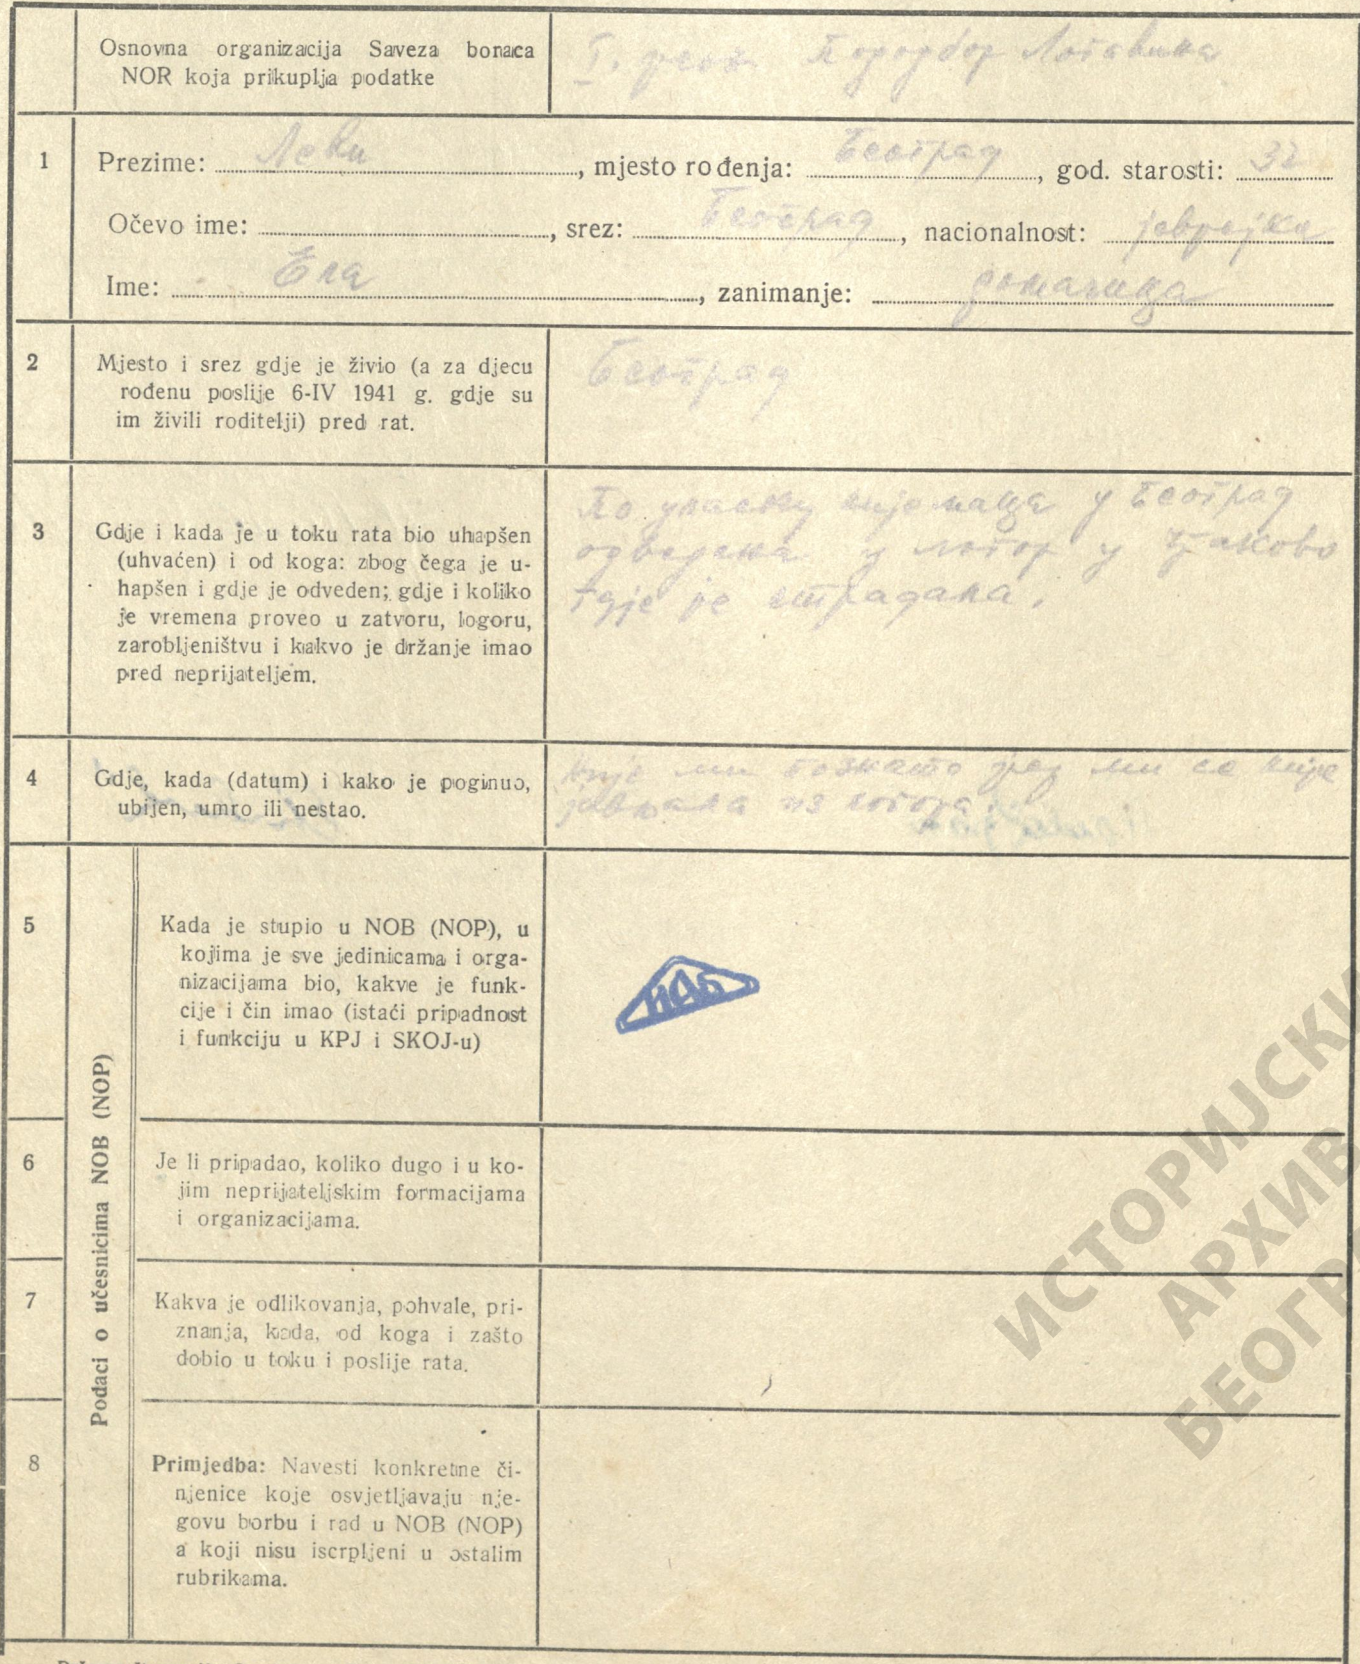 Osnovna organizacija Saveza boraca
NOR koja prikuplja podatke
I. реон
1
Prezime: Леви, mjesto rođenja: Београд, god. starosti: 32
Očevo ime: , srez: Београд, nacionalnost: јеврејка
Ime: Ела, zanimanje: домаћица
2
Mjesto i srez gdje je živio (a za djecu
rođenu poslije 6-IV 1941 g. gdje su
im živili roditelji) pred rat.
Београд
3
Gdje i kada je u toku rata bio uhapšen
(uhvaćen) i od koga: zbog čega je u-
hapšen i gdje je odveden; gdje i koliko
je vremena proveo u zatvoru, logoru,
zarobljeništvu i kakvo je držanje imao
pred neprijateljem.
По уласку нијемаца у Београд
одведена у логор у Ђаково
гдје је страдала.
4
Gdje, kada (datum) i kako je poginuo,
ubijen, umro ili nestao.
није ми познато јер ми се није
јављала из логора.
Podaci o učesnicima NOB (NOP)
5
Kada je stupio u NOB (NOP), u
kojima je sve jedinicama i orga-
nizacijama bio, kakve je funk-
cije i čin imao (istaći pripadnost
i funkciju u KPJ i SKOJ-u)
ИАБ
6
Je li pripadao, koliko dugo i u ko-
jim neprijateljskim formacijama
i organizacijama.
7
Kakva je odlikovanja, pohvale, pri-
znanja, kada, od koga i zašto
dobio u toku i poslije rata.
8
Primjedba: Navesti konkretne či-
njenice koje osvjetljavaju nje-
govu borbu i rad u NOB (NOP)
a koji nisu iscrpljeni u ostalim
rubrikama.
ИСТОРИЈСКИ
АРХИВ
БЕОГР